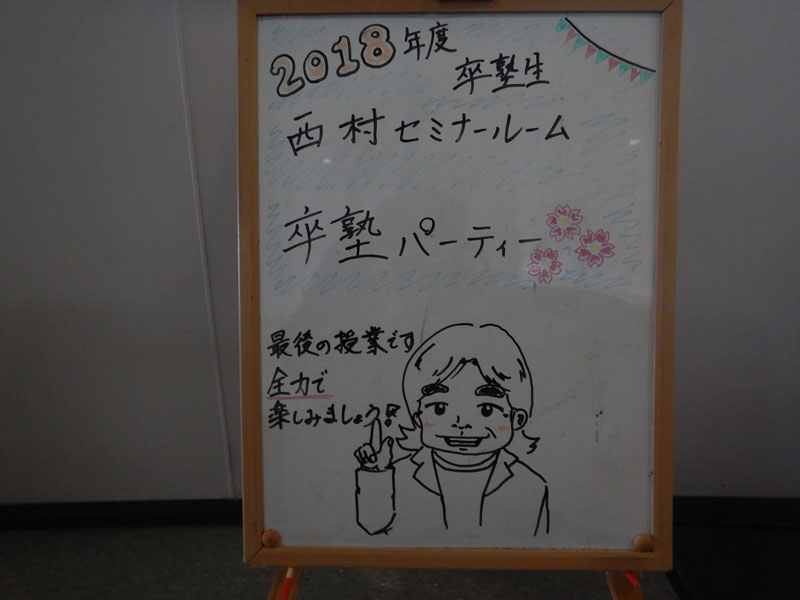 2018年度
卒塾生
西村セミナールーム
卒塾パーティー
最後の授業です
全力で
楽しみましょう!